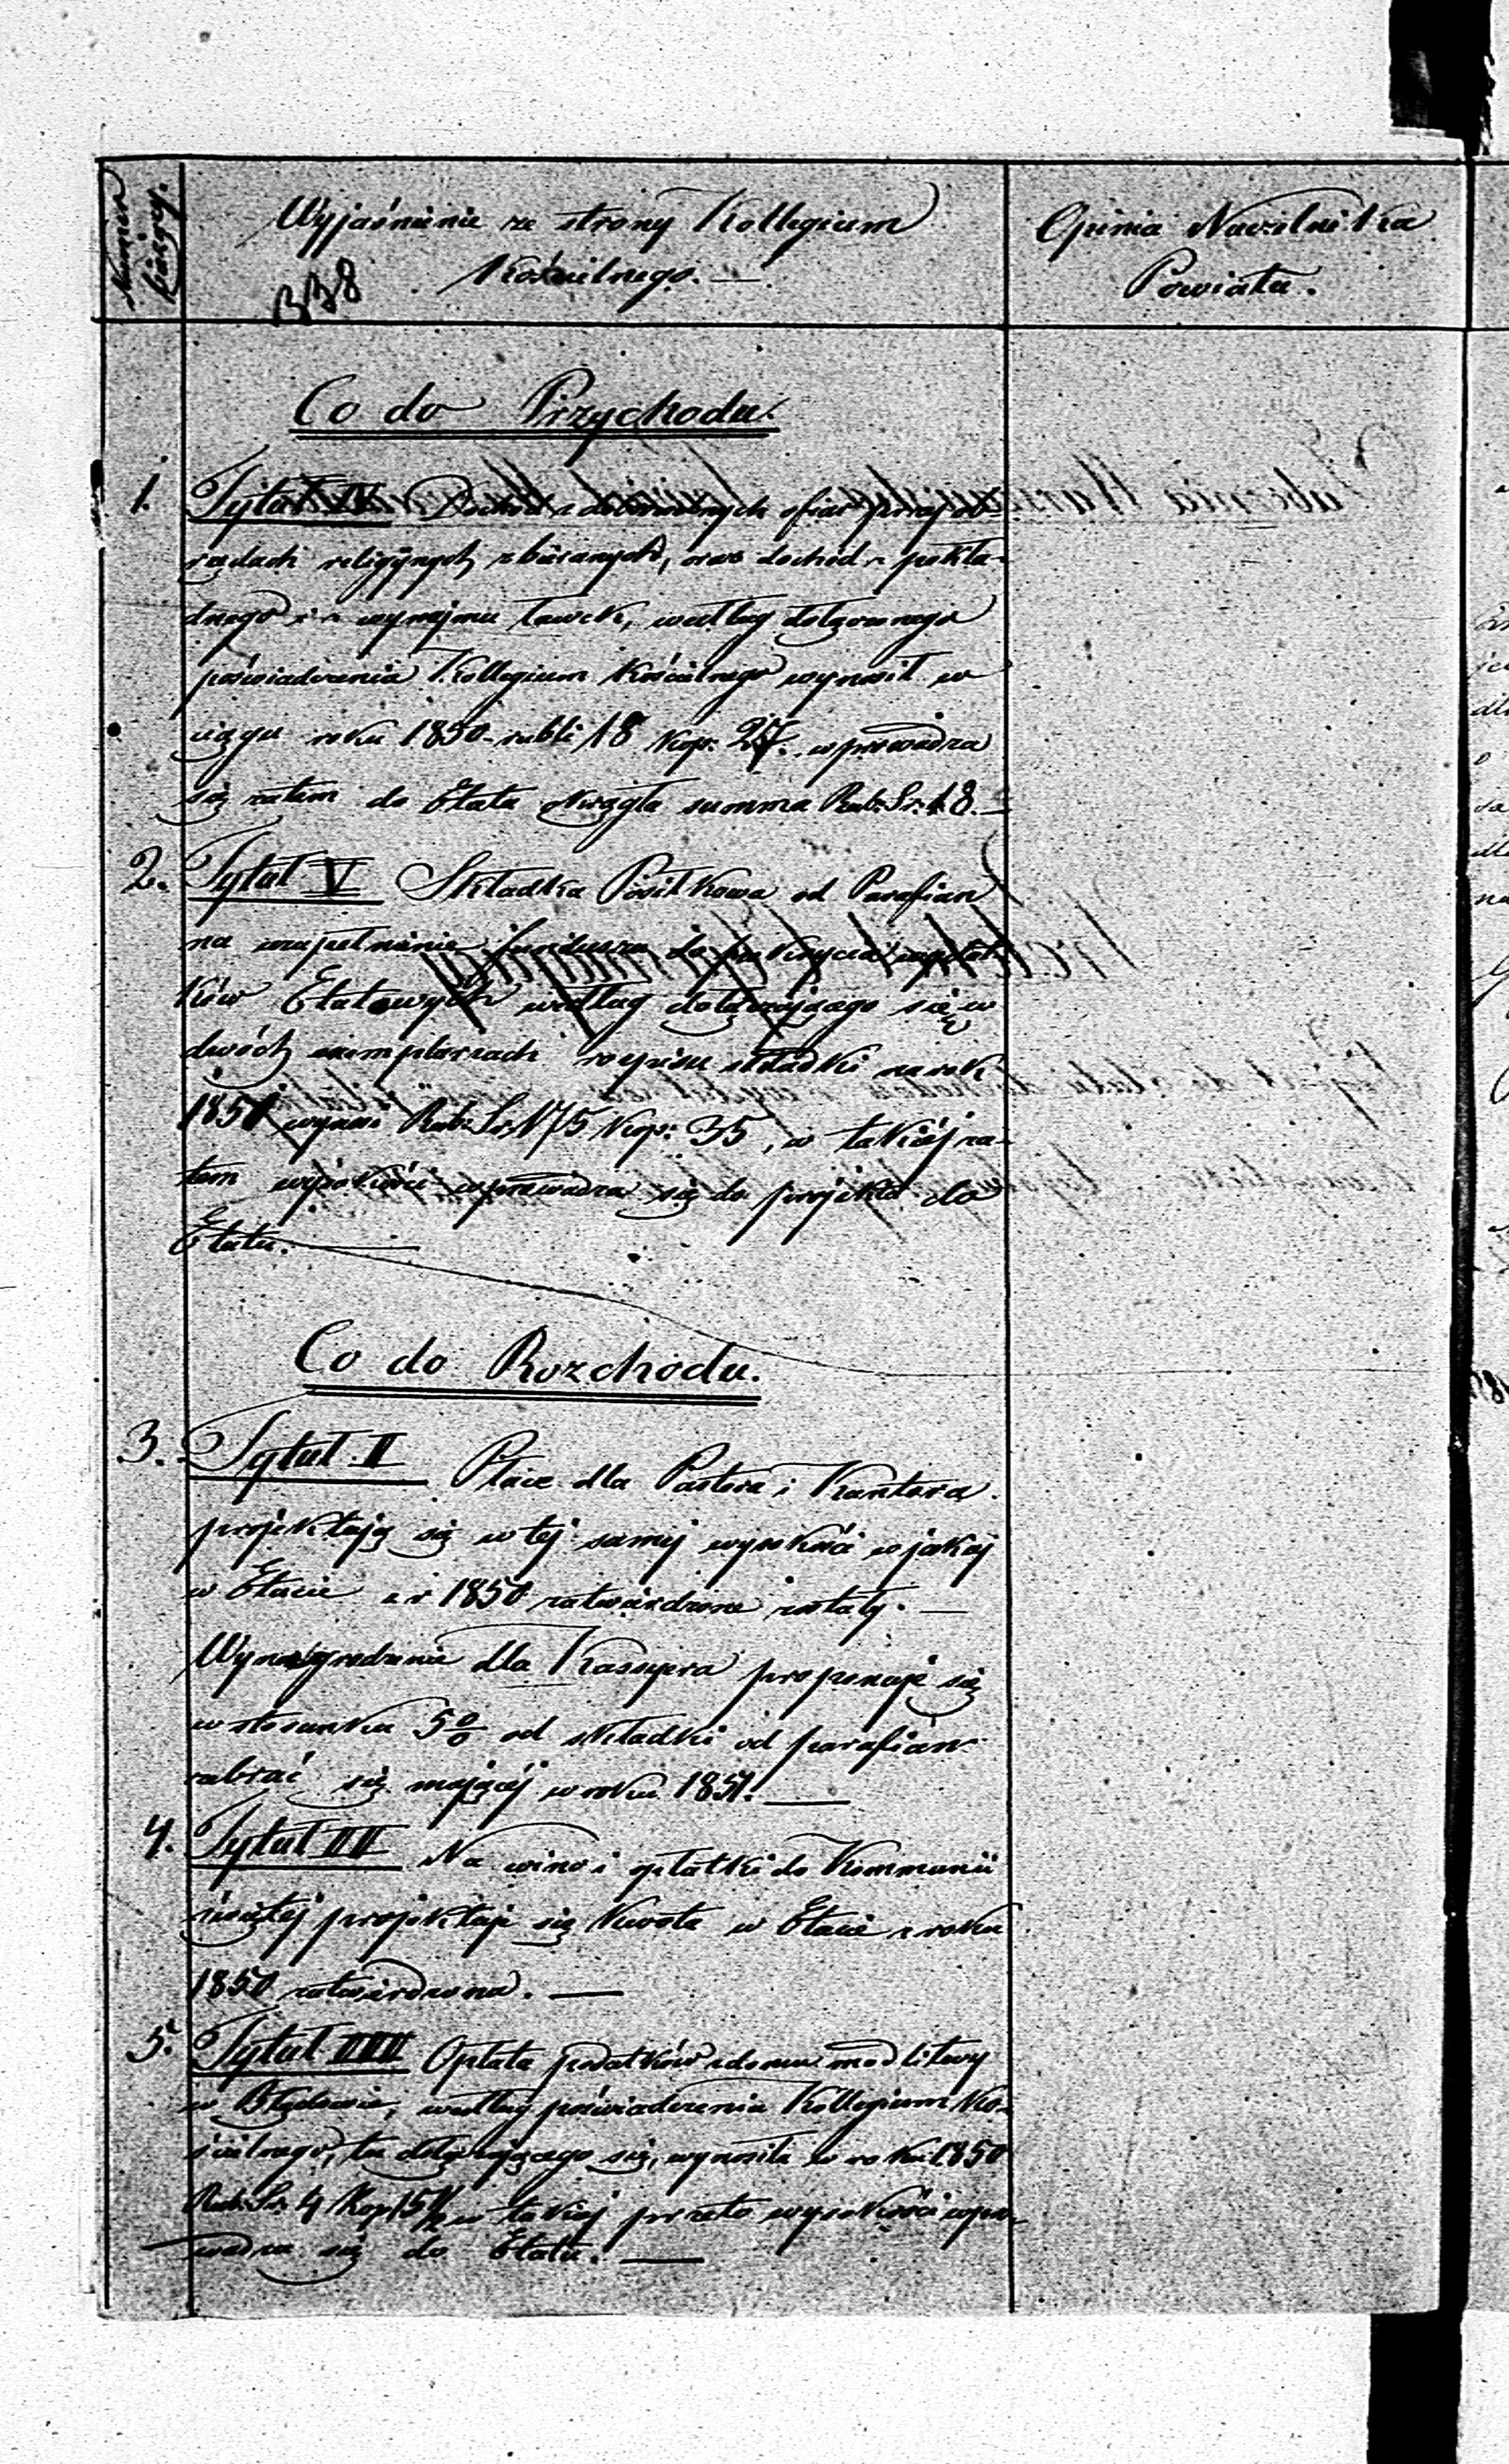 Numer bieżący.
Wyjaśnienie ze strony Kollegium
Kościelnego. —
338
Opinia Naczelnika
Powiatu.
Co do Przychodu.
1. Tytuł IV Dochód z dobrowolnych ofiar przy ob-
rzędach religijnych zbieranych, oraz dochód z pokła-
dnego i z wynajmu ławek, według dołączonego
poświadczenia Kollegium Kościelnego wynosił w
ciągu roku 1850 rubli 18 kop. 27. wprowadza
się zatem do Etatu okrągła summa Rub. Sr. 18. —
2. Tytuł V Składka Posiłkowa od Parafian
na uzupełnienie funduszu do pokrycia wydat-
ków Etatowych według dołączającego się w
dwóch exemplarzach rozpisu składki na rok
1851 wynosi Rub. Sr. 175 Kop. 35, w takiéj za-
tem wysokości wprowadza się do projektu do
Etatu. —
Co do Rozchodu.
3. Tytuł II Płace dla Pastora i Kantora
projektują się w tej samej wysokości w jakiej
w Etacie z r 1850 zatwierdzone zostały. —
Wynagrodzenie dla Kassyera proponuje się
w stosunku 5% od składki od parafian
zebrać się mającéj w roku 1851. —
4. Tytuł III Na wino i opłatki do Kommunii
świętej projektuje się kwota w Etacie z roku
1850 zatwierdzona. —
5. Tytuł IIII Opłata podatków z domu modlitwy
w Błędowie, według poświadczenia Kollegium Ko-
ścielnego, tu dołączającego się, wynosiła w roku 1850
Rub. Sr. 4 Kop. 15 1/2 w takiej przeto wysokości wpro-
wadza się do Etatu. —